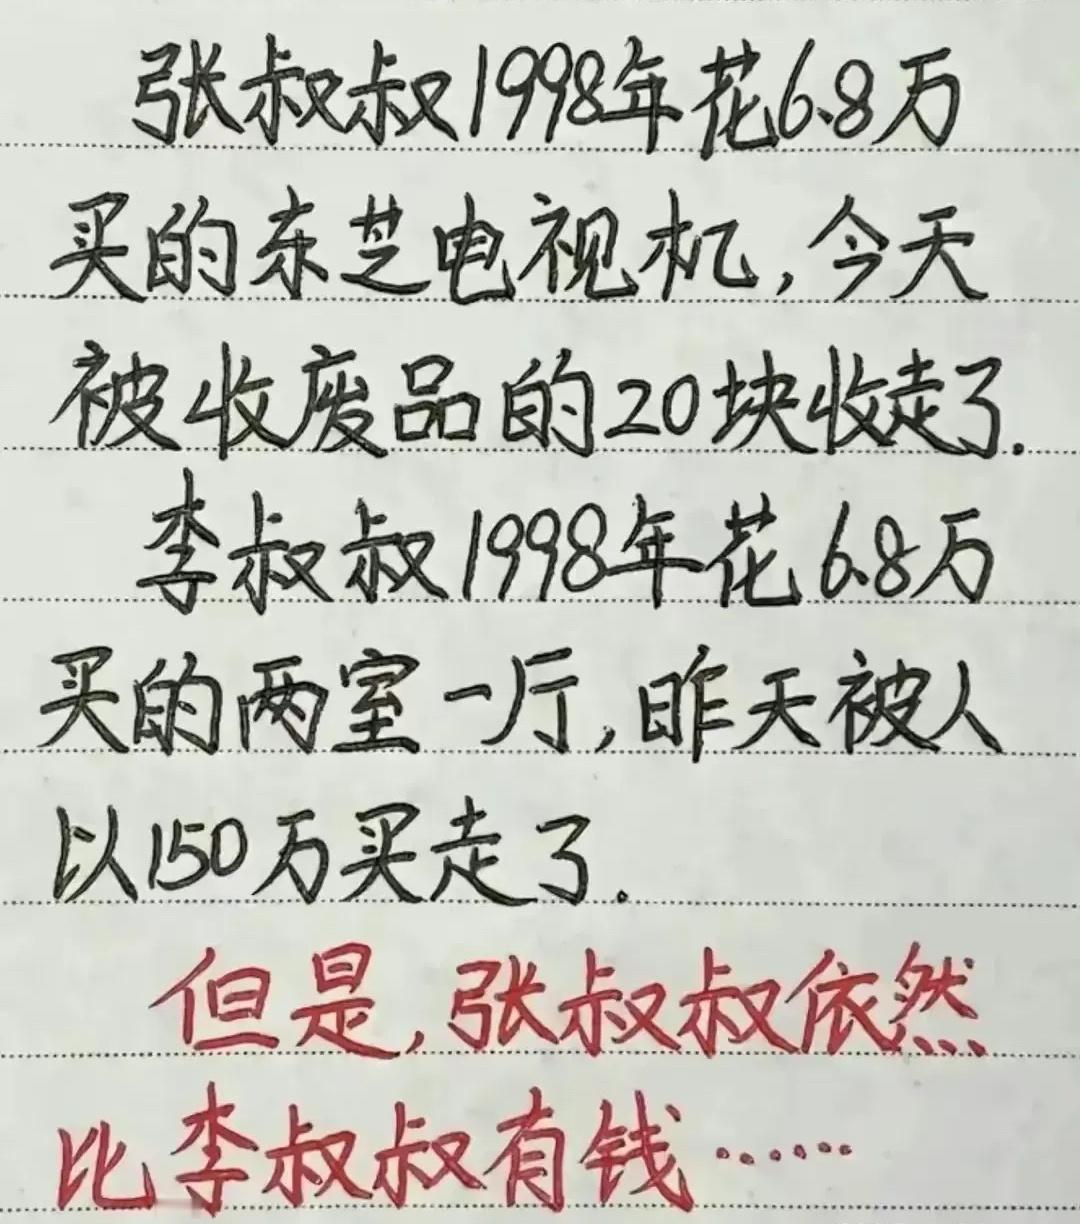 张叔叔1998年花6.8万
买的东芝电视机,今天
被收废品的20块收走了.
李叔叔1998年花6.8万
买的两室一厅,昨天被人
以150万买走了.
但是,张叔叔依然
比李叔叔有钱……